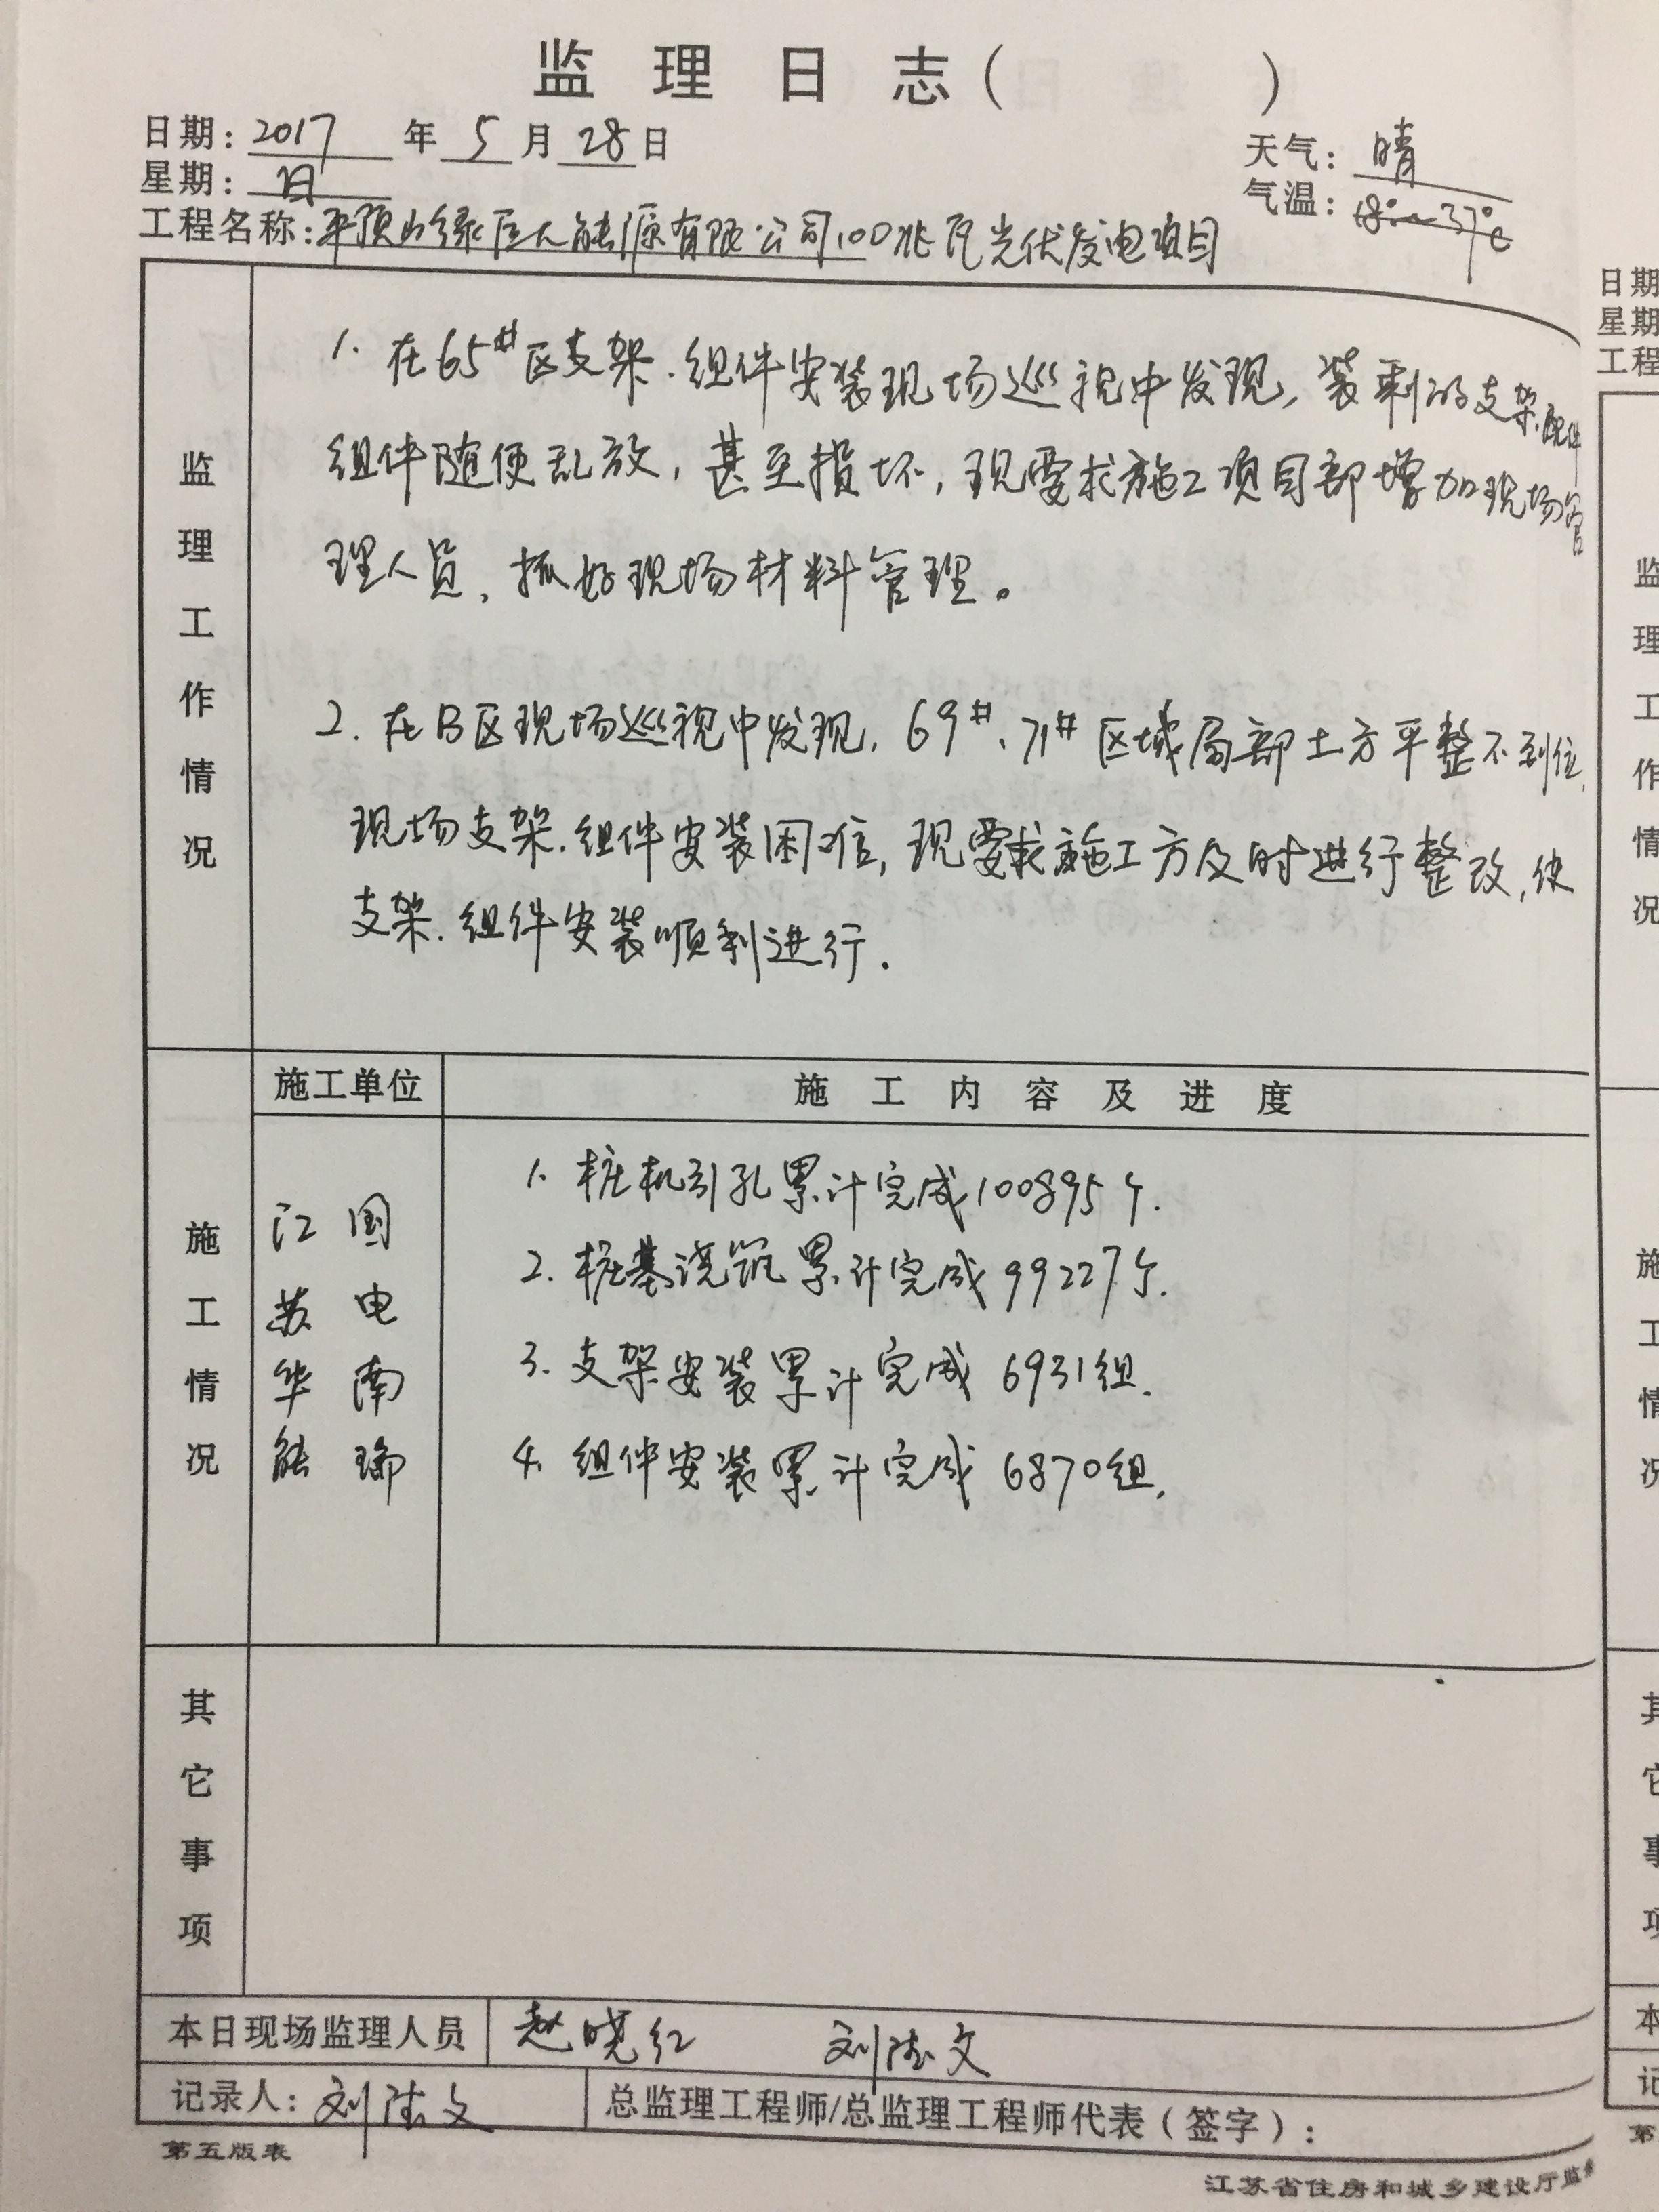 监理日志( )
日期: 2017 年 5 月 28 日
天气: 晴
星期: 日
气温: 18°~37℃
工程名称: 平顶山绿巨人能源有限公司100兆瓦光伏发电项目
监理工作情况
1. 在65#区支架.组件安装现场巡视中发现,装剩的支架.配件
组件随便乱放,甚至损坏,现要求施工项目部增加现场管
理人员,抓好现场材料管理。
2. 在B区现场巡视中发现,69#、71#区域局部土方平整不到位,
现场支架.组件安装困难,现要求施工方及时进行整改,使
支架.组件安装顺利进行.
施工情况
施工单位
施工内容及进度
江苏华能
国电南瑞
1. 桩机引孔累计完成100895个.
2. 桩基浇筑累计完成99227个.
3. 支架安装累计完成 6931组.
4. 组件安装累计完成 6870组.
其它事项
本日现场监理人员 赵晓红 刘 文
记录人: 刘 文
总监理工程师/总监理工程师代表(签字):
第五版表
江苏省住房和城乡建设厅监
日期
星期
工程
监理工作情况
施工情况
其它事项
本
记
第